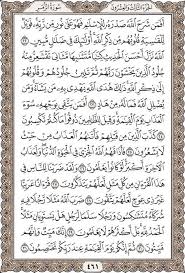 الجزء الثالث والعشرون سورة الزمر
أَفَمَن شَرَحَ ٱللَّهُ صَدْرَهُۥ لِلْإِسْلَٰمِ فَهُوَ عَلَىٰ نُورٍ مِّن رَّبِّهِۦ فَوَيْلٌ
لِّلْقَٰسِيَةِ قُلُوبُهُم مِّن ذِكْرِ ٱللَّهِ أُو۟لَٰٓئِكَ فِى ضَلَٰلٍ مُّبِينٍ ٢٢
ٱللَّهُ نَزَّلَ أَحْسَنَ ٱلْحَدِيثِ كِتَٰبًا مُّتَشَٰبِهًا مَّثَانِىَ تَقْشَعِرُّ مِنْهُ
جُلُودُ ٱلَّذِينَ يَخْشَوْنَ رَبَّهُمْ ثُمَّ تَلِينُ جُلُودُهُمْ وَقُلُوبُهُمْ إِلَىٰ
ذِكْرِ ٱللَّهِ ذَٰلِكَ هُدَى ٱللَّهِ يَهْدِى بِهِۦ مَن يَشَآءُ وَمَن يُضْلِلِ
ٱللَّهُ فَمَا لَهُۥ مِنْ هَادٍ ٢٣ أَفَمَن يَتَّقِى بِوَجْهِهِۦ سُوٓءَ ٱلْعَذَابِ
يَوْمَ ٱلْقِيَٰمَةِ وَقِيلَ لِلظَّٰلِمِينَ ذُوقُوا۟ مَا كُنتُمْ تَكْسِبُونَ ٢٤
كَذَّبَ ٱلَّذِينَ مِن قَبْلِهِمْ فَأَتَىٰهُمُ ٱلْعَذَابُ مِنْ حَيْثُ
لَا يَشْعُرُونَ ٢٥ فَأَذَاقَهُمُ ٱللَّهُ ٱلْخِزْىَ فِى ٱلْحَيَوٰةِ ٱلدُّنْيَا وَلَعَذَابُ
ٱلْءَاخِرَةِ أَكْبَرُ لَوْ كَانُوا۟ يَعْلَمُونَ ٢٦ وَلَقَدْ ضَرَبْنَا لِلنَّاسِ
فِى هَٰذَا ٱلْقُرْءَانِ مِن كُلِّ مَثَلٍ لَّعَلَّهُمْ يَتَذَكَّرُونَ ٢٧ قُرْءَانًا عَرَبِيًّا
غَيْرَ ذِى عِوَجٍ لَّعَلَّهُمْ يَتَّقُونَ ٢٨ ضَرَبَ ٱللَّهُ مَثَلًا رَّجُلًا فِيهِ
شُرَكَآءُ مُتَشَٰكِسُونَ وَرَجُلًا سَلَمًا لِّرَجُلٍ هَلْ يَسْتَوِيَانِ مَثَلًا
ٱلْحَمْدُ لِلَّهِ بَلْ أَكْثَرُهُمْ لَا يَعْلَمُونَ ٢٩ إِنَّكَ مَيِّتٌ وَإِنَّهُم مَّيِّتُونَ
٣٠ ثُمَّ إِنَّكُمْ يَوْمَ ٱلْقِيَٰمَةِ عِندَ رَبِّكُمْ تَخْتَصِمُونَ ٣١
٤٦١